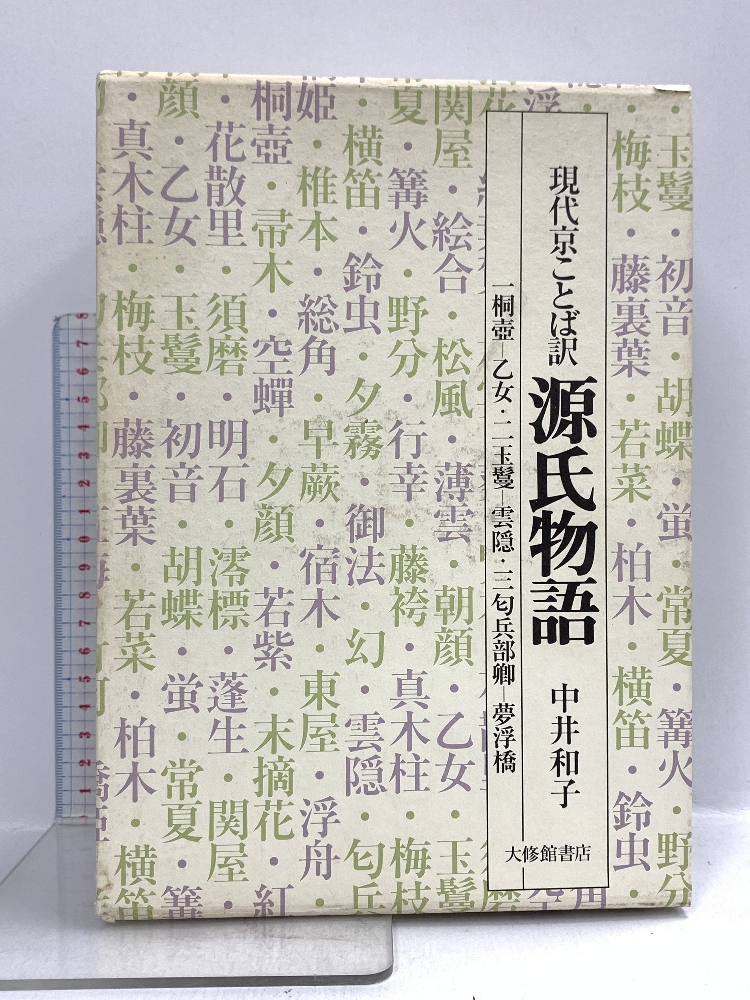 ・玉鬘・初音・胡蝶・蛍・常夏・篝火・野分
梅枝・藤裏葉・若菜・柏木・横笛・鈴虫・
現代京ことば訳 源氏物語 中井和子
一桐壺―乙女・二玉鬘―雲隠・三匂兵部卿―夢浮橋
大修館書店
関屋・絵合・松風・薄雲・朝顔・乙女・玉鬘
夏・篝火・野分・行幸・藤袴・真木柱・梅枝
・横笛・鈴虫・夕霧・御法・幻・雲隠・匂兵
姫・椎本・総角・早蕨・宿木・東屋・浮舟・
桐壺・帚木・空蟬・夕顔・若紫・末摘花・紅
・花散里・須磨・明石・澪標・蓬生・関屋・
顔・乙女・玉鬘・初音・胡蝶・蛍・常夏・篝
・真木柱・梅枝・藤裏葉・若菜・柏木・横笛